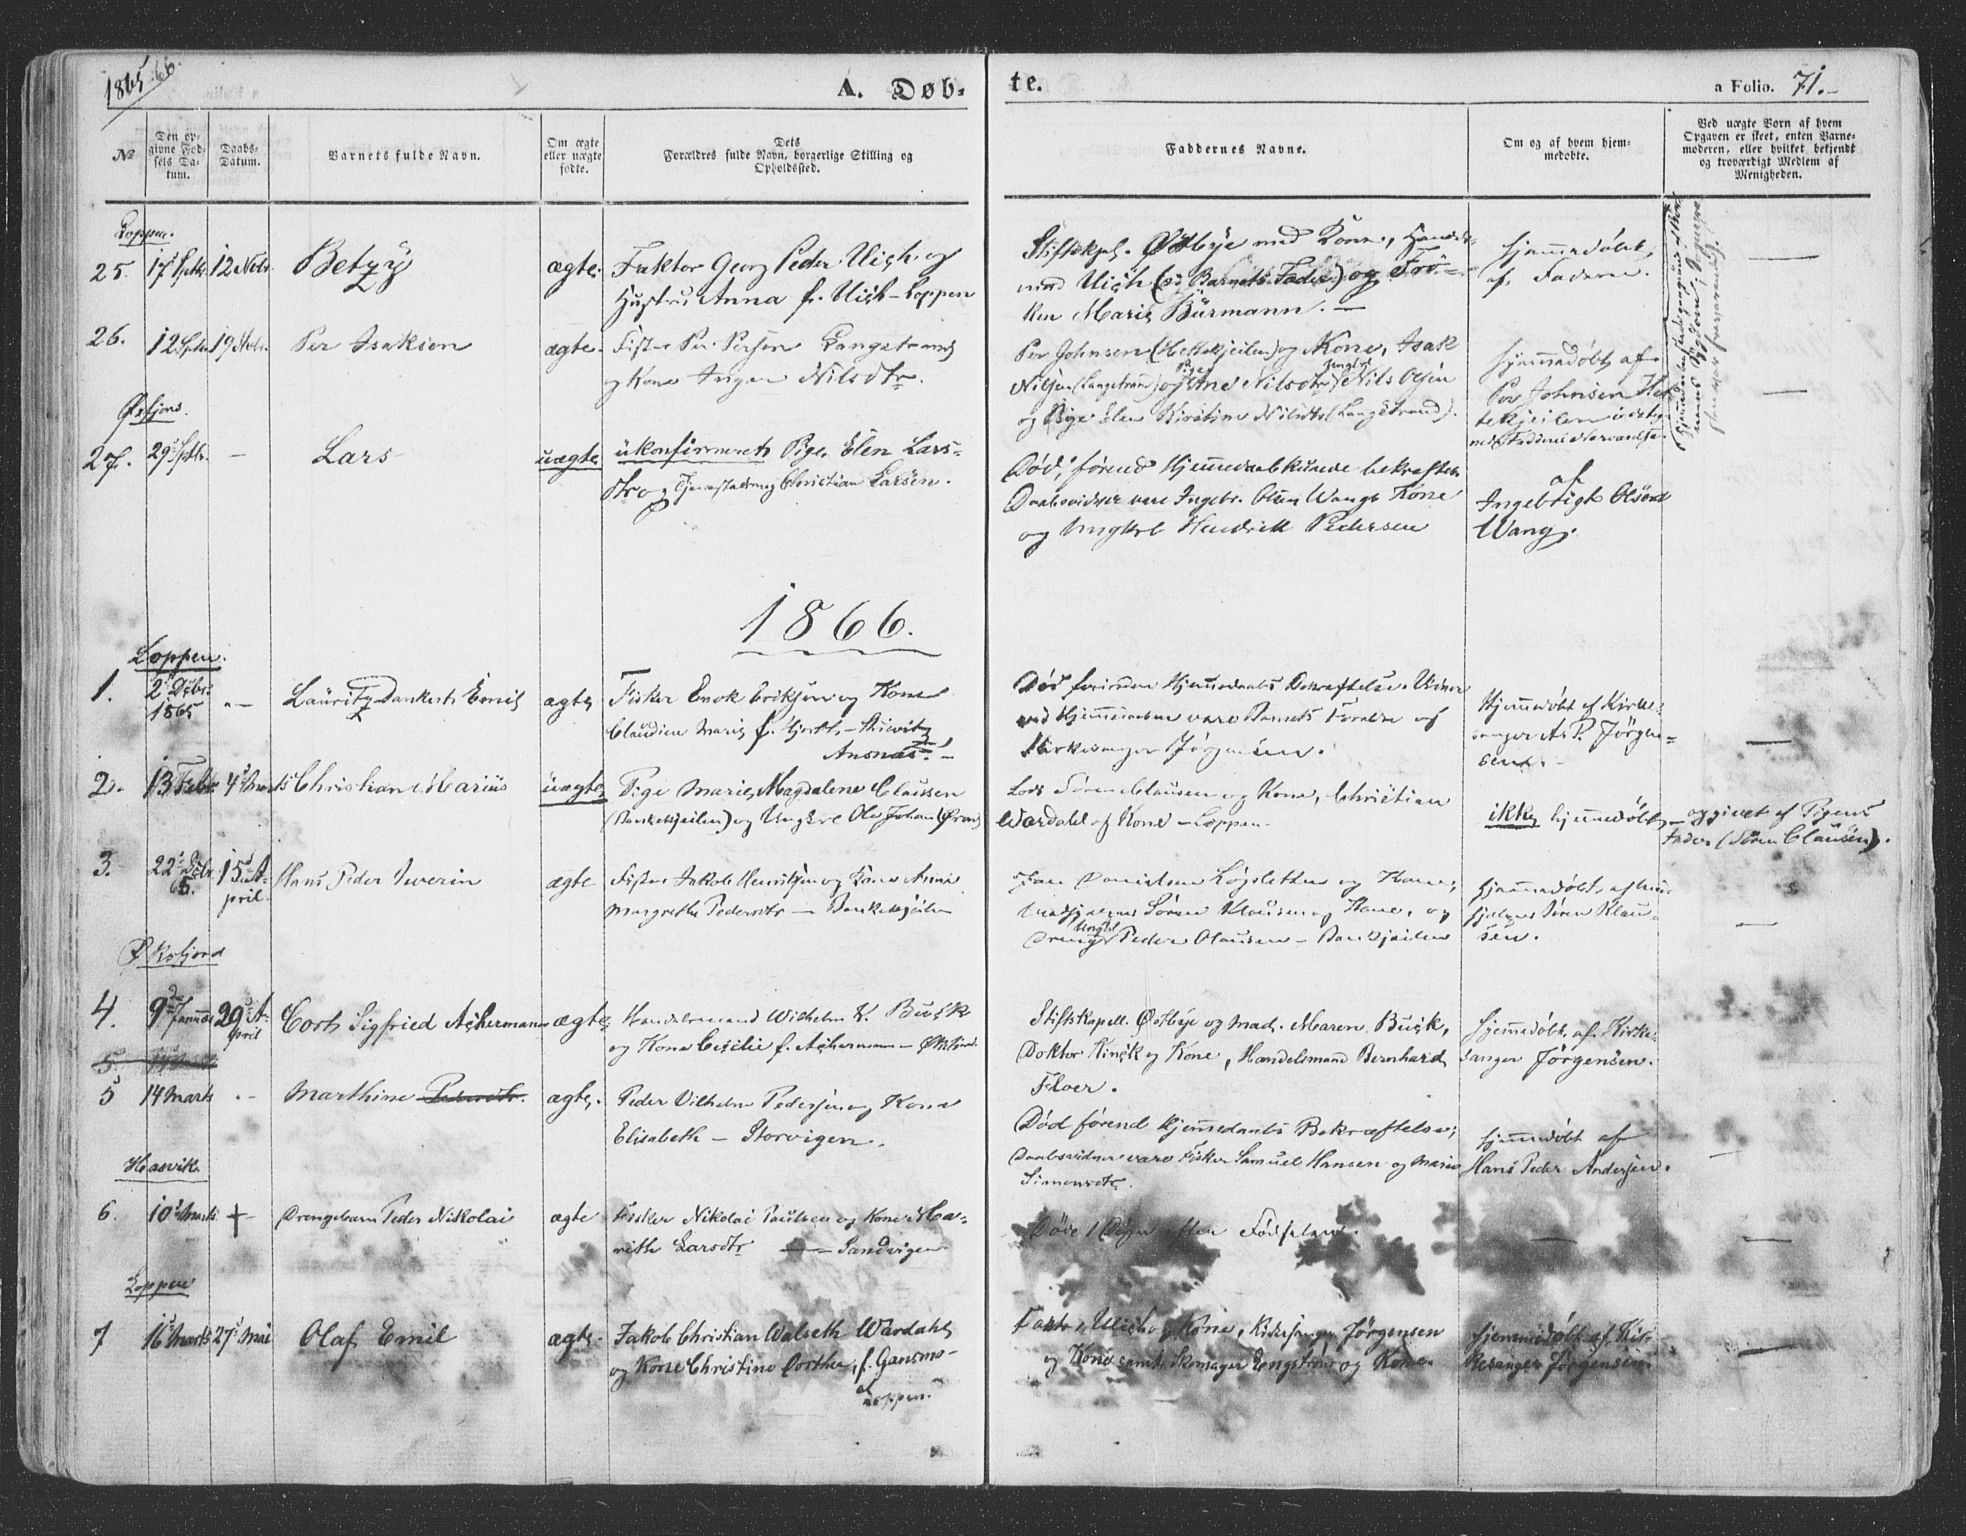 1865-66.
A. Døb-
te.
a Folio. 71.-
№
Den op-
givne Fød-
sels Da-
tum.
Daabs-
Datum.
Barnets fulde Navn.
Om ægte
eller uægte
fødte.
Dets
Forældres fulde Navn, borgerlige Stilling og
Opholdssted.
Faddernes Navne.
Om og af hvem hjem-
medøbte.
Ved uægte Børn af hvem
Opgaven er skeet, enten Barne-
moderen, eller hvilket bekjendt
og troværdigt Medlem af
Menigheden.
Loppen.
25. 17 Sptbr 12 Nvbr. Betzy ægte. Faktor Georg Peder Uich og
Hustru Anna f. Uich - Loppen
Stiftskpl. Østbye med Kone, Handels-
mand Uich (Barnets Fader) og Frø-
ken Marie Bürmann. —
Hjemmedøbt
af Faderen.
26. 12 Sptb 19 Nvbr. Per Isaksen ægte. Fisker Per Persen Langstrand
og Kone Inger Nilsdtr.
Per Johnsen (Hettekjeilen) og Kone, Isak
Nilsen (Langstrand) og Pige Ane Nilsdtr Ungkrl Nils Olsen
og Pige Elen Kirstine Nilsdtr (Langstrand).
Hjemmedøbt af
Per Johnsen Het-
tekjeilen
Øxfjord.
27. 29 Sptbr. — Lars uægte ukonfirmerede Pige Elen Lars-
dtr og Christian Larsen.
Død, førend Hjemmedaabkunde bekræftes
Daabsvidner vare Ingebr. Olsen Wangs Kone
og Ungkrl Hendrik Pedersen
af
Ingebrigt Olsen
Wang.
1866.
Loppen.
1. 2 Dcbr. 1865 — Lauritz Dankert Emil ægte Fisker Enok Eriksen og Kone
Claudine Marie f. Hjort, -
Ansnæs. -
Død førinden Hjemmedaabs Bekræftelse. Vidner
ved Hjemmedaaben vare Barnets Forældre og
Kirkesanger Jørgensen.
Hjemmedøbt af Kirke-
sanger As P. Jørgen-
sen. -
2. 13 Febr 4 Marts Christian Marius uægte Pige Marie Magdalene Claussen
(Bankekjeilen) og Ungkrl Ole Johan
Lods Søren Clausen og Kone, Christian
Wardahl og Kone - Loppen.
ikke hjemmedøbt — opgivet af Pigens
Fader (Søren Clausen).
3. 22 Dcbr 65. 15 A-
pril. Hans Peder Iverin ægte Fisker Jakob Henriksen og Kone Anne
Margrethe Pedersdtr — Bankekjeilen
Danielsen Løgsletten og Kone,
Søren Klausen og Kone, og
Ungkl
Dreng Peder Clausen - Bankjeilen
Hjemmedøbt af
Søren Klau-
sen.
Øksfjord
4. 9 Januar 29 A-
pril Cort Sigfried Achermann ægte Handelsmand Wilhelm K. Buck
og Kone Cecilie f. Achermann - Øksfjord.
Stiftskapell. Østbye og Mad. Maren Buck,
Doktor Kinck og Kone, Handelsmand Bernhard
Floer.
Hjemmedøbt af Kirke-
sanger Jørgensen.
5 14 Marts — Marthine Pedersdtr. ægte. Peder Vilhelm Pedersen og Kone
Elisabeth - Storvigen.
Død førend Hjemmedaabs Bekræftelse;
Daabsvidner vare Fisker Samuel Hansen og Marie
Simonsdtr.
Hjemmedøbt af
Hans Peder Andersen.
Hasvik
6. 10 Marts + Drengebarn Peder Nikolai ægte Fisker Nikolai Paulsen og Kone Ma-
rithe Larsdtr — Sandvigen
Døde 1 Døgn efter Fødselen.
Loppen
7 16 Marts 27 Mai Olaf Emil ægte. Jakob Christian Walseth Wardahl
og Kone Christine Dorthea f. Gansmo -
Loppen.
Faktor Uich og Kone, Kirkesanger Jørgensen
og Kone samt Skomager Engstrøm og Kone.
Hjemmedøbt af Kir-
kesanger Jørgensen